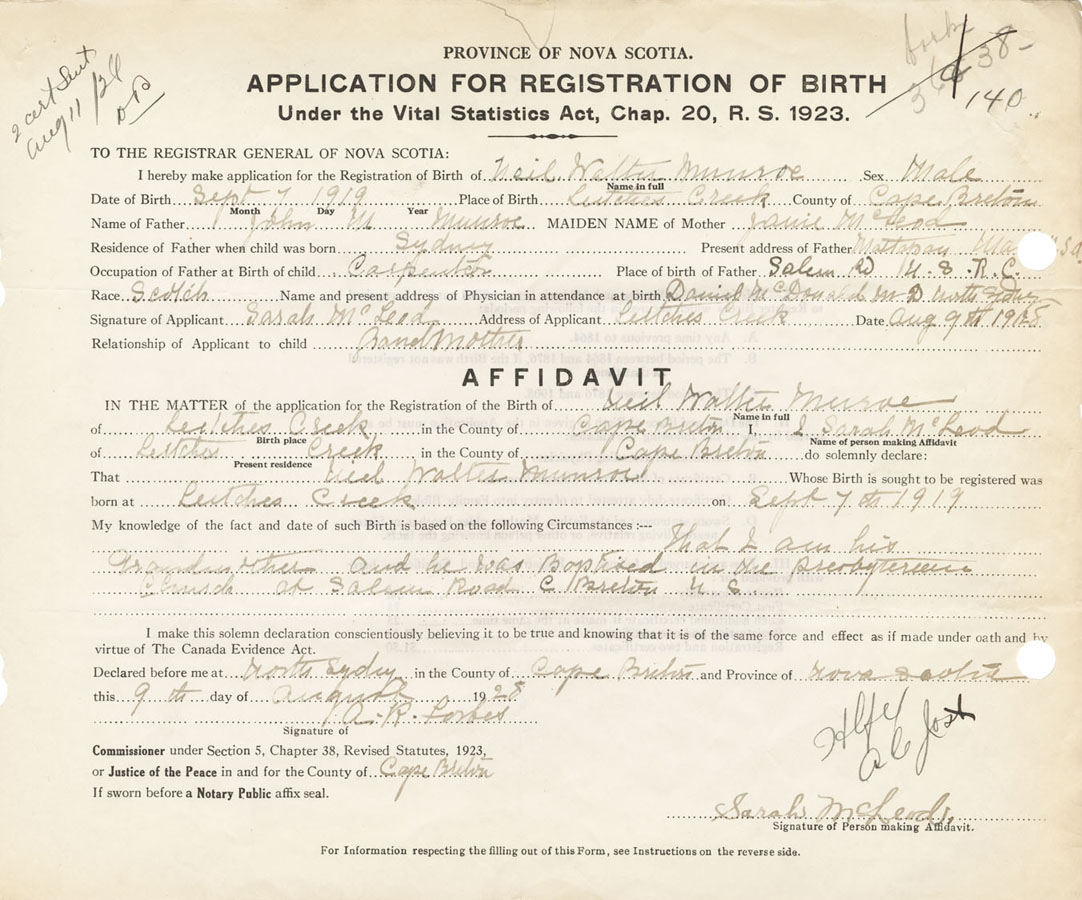 2 cert sent
Aug 11/28
38-
140
PROVINCE OF NOVA SCOTIA.
APPLICATION FOR REGISTRATION OF BIRTH
Under the Vital Statistics Act, Chap. 20, R. S. 1923.
TO THE REGISTRAR GENERAL OF NOVA SCOTIA:
I hereby make application for the Registration of Birth of Neil Walter Munroe Sex Male
Name in full
Date of Birth Sept 7 1919 Place of Birth Leitches Creek County of Cape Breton
Month Day Year
Name of Father John M Munroe MAIDEN NAME of Mother Janie McLeod
Residence of Father when child was born Sydney Present address of Father Mattapan
Occupation of Father at Birth of child Carpenter Place of birth of Father Salem Rd
Race Scotch Name and present address of Physician in attendance at birth Daniel McDonald M D North Sydney
Signature of Applicant Sarah McLeod Address of Applicant Leitches Creek Date Aug 9th
Relationship of Applicant to child Grand Mother
AFFIDAVIT
IN THE MATTER of the application for the Registration of the Birth of Neil Walter Munroe
Name in full
of Leitches Creek in the County of Cape Breton I, I Sarah McLeod
Birth place Name of person making Affidavit
of Leitches Creek in the County of Cape Breton do solemnly declare:
Present residence
That Neil Walter Munroe Whose Birth is sought to be registered was
born at Leitches Creek on Sept 7th 1919
My knowledge of the fact and date of such Birth is based on the following Circumstances :---
That I am his
Grandmother and he was Baptised in the Presbyterian
Church at Salem Road C Breton N S
I make this solemn declaration conscientiously believing it to be true and knowing that it is of the same force and effect as if made under oath and by
virtue of The Canada Evidence Act.
Declared before me at North Sydney in the County of Cape Breton and Province of Nova Scotia
this 9th day of August 1928
A. R. Forbes
Signature of
Commissioner under Section 5, Chapter 38, Revised Statutes, 1923,
or Justice of the Peace in and for the County of Cape Breton
If sworn before a Notary Public affix seal.
Sarah McLeod
Signature of Person making Affidavit.
For Information respecting the filling out of this Form, see Instructions on the reverse side.